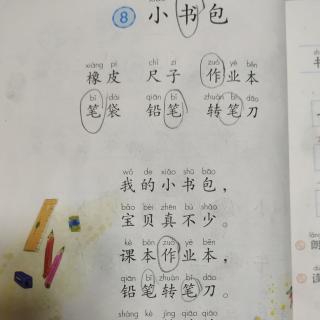 xiǎo shū bāo
⑧ 小书包
xiàng pí chǐ zi zuò yè běn
橡皮 尺子 作业本
bǐ dài qiān bǐ zhuàn bǐ dāo
笔袋 铅笔 转笔刀
wǒ de xiǎo shū bāo
我的小书包，
bǎo bèi zhēn bù shǎo
宝贝真不少。
kè běn zuò yè běn
课本作业本，
qiān bǐ zhuàn bǐ dāo
铅笔转笔刀。
shàng kè jìng qiāo qiāo
书
朗
读